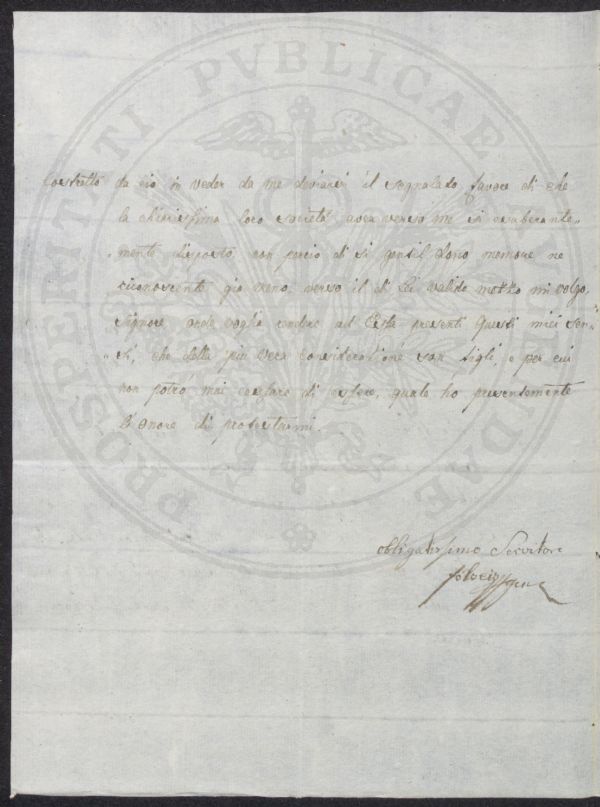 PROSPERITATI PVBLICAE AVGENDAE
Costretto da ciò in veder da me deviarsi il segnalado favore di che
la chiarissima loro società aveva verso me si esuberante-
mente disposto, non perciò di si gentil dono memore ne
riconoscente già meno verso il di Lei valido mezzo mi volgo
Signore onde voglia rendere ad Essa presenti questi miei sen-
si, che della più vera considerazione son figli, e per cui
non potrò mai cessare di essere, quale ho presentemente
l'onore di protestarmi.
obligatissimo Servitore